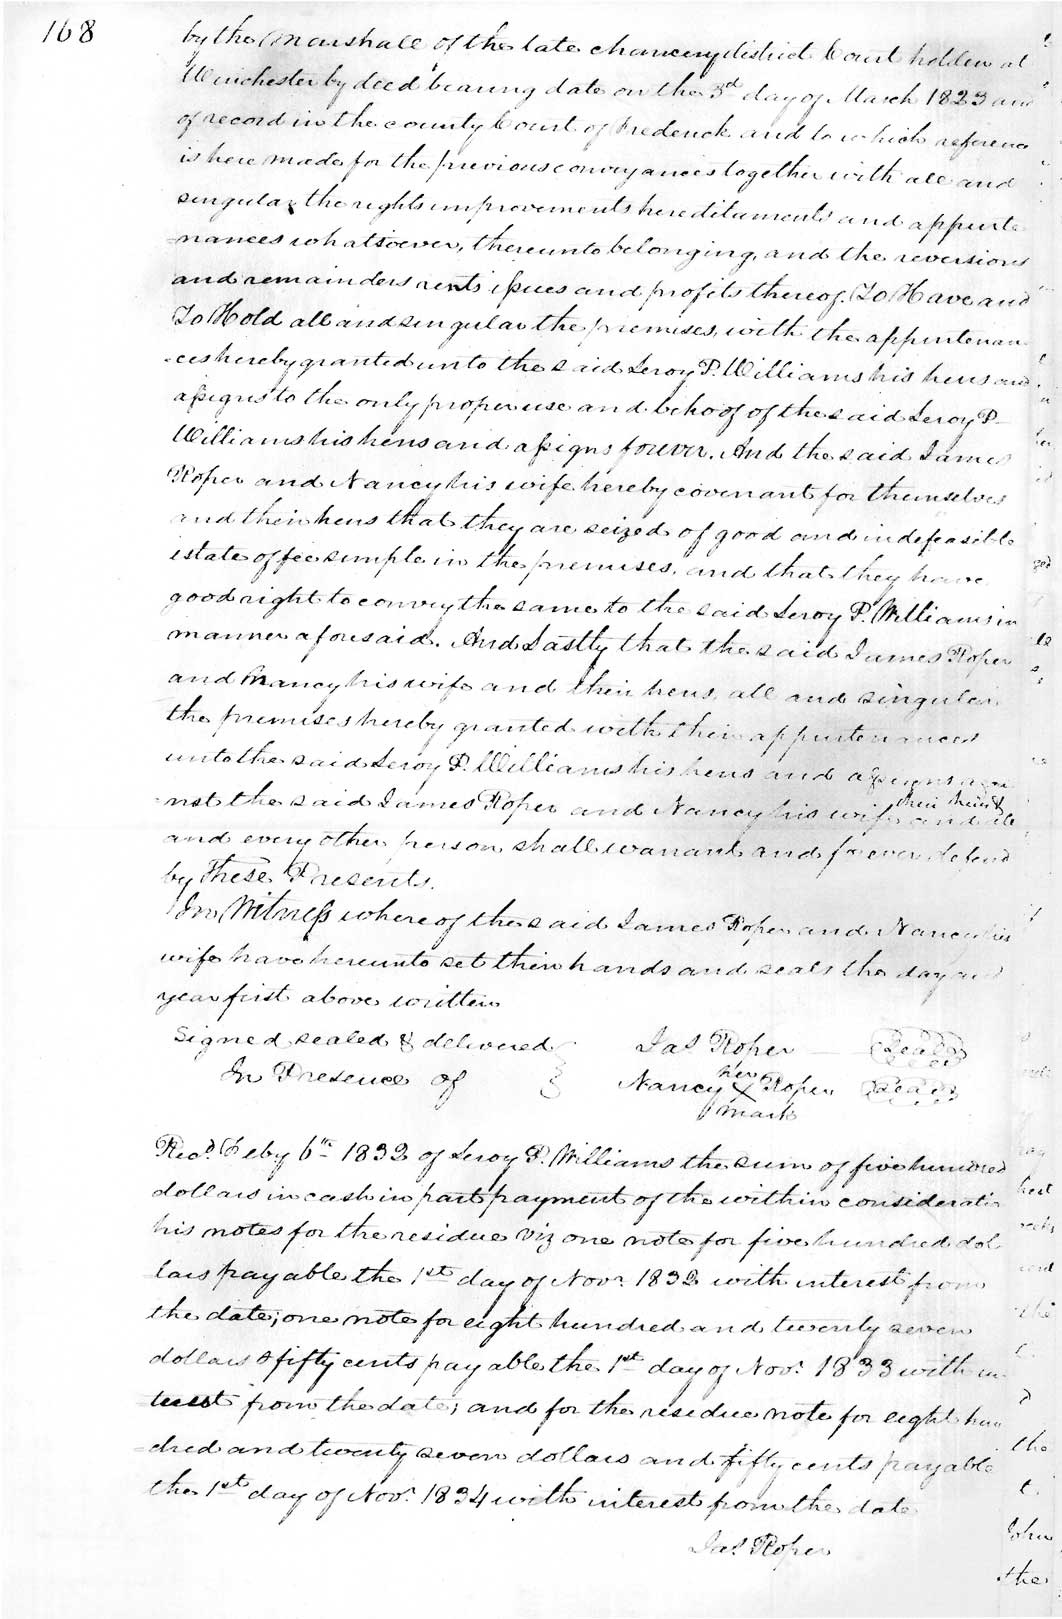 168
by the Marshall of the late chancery district Court holden at
Winchester by deed bearing date on the 3rd day of March 1823 and
of record in the county Court of Frederick and to which reference
is here made for the previous conveyances together with all and
singular the rights improvements hereditaments and appurte
=nances whatsoever, thereunto belonging, and the reversions
and remainders rents issues and profits thereof. To Have and
To Hold all and singular the premises, with the appurtenan
=ces hereby granted unto the said Leroy P. Williams his heirs and
assigns to the only proper use and behoof of the said Leroy P.
Williams his heirs and assigns forever. And the said James
Roper and Nancy his wife hereby covenant for themselves
and their heirs that they are seized of good and indefeasible
estate of fee simple in the premises, and that they have
good right to convey the same to the said Leroy P. Williams in
manner aforesaid. And Lastly that the said James Roper
and Nancy his wife and their heirs, all and singular
the premises hereby granted with their appurtenances
unto the said Leroy P. Williams his heirs and assigns agai
=nst the said James Roper and Nancy his wife their heirs & and all
and every other person shall warrant and forever defend
by These Presents.
In Witness whereof the said James Roper and Nancy his
wife have hereunto set their hands and seals the day and
year first above written
Signed sealed & delivered Jas Roper Seal
In Presence of Nancy her X mark Roper Seal
Recd. Feby 6th 1832 of Leroy P. Williams the sum of five hundred
dollars in cash in part payment of the within consideratio
his notes for the residue viz one note for five hundred dol
lars payable the 1st day of Novr 1832 with interest from
the date; one note for eight hundred and twenty seven
dollars & fifty cents payable the 1st day of Novr. 1833 with in
terest from the date; and for the residue note for eight hun
=dred and twenty seven dollars and fifty cents payable
the 1st day of Novr. 1834 with interest from the date
Jas. Roper
the
t.
John
the